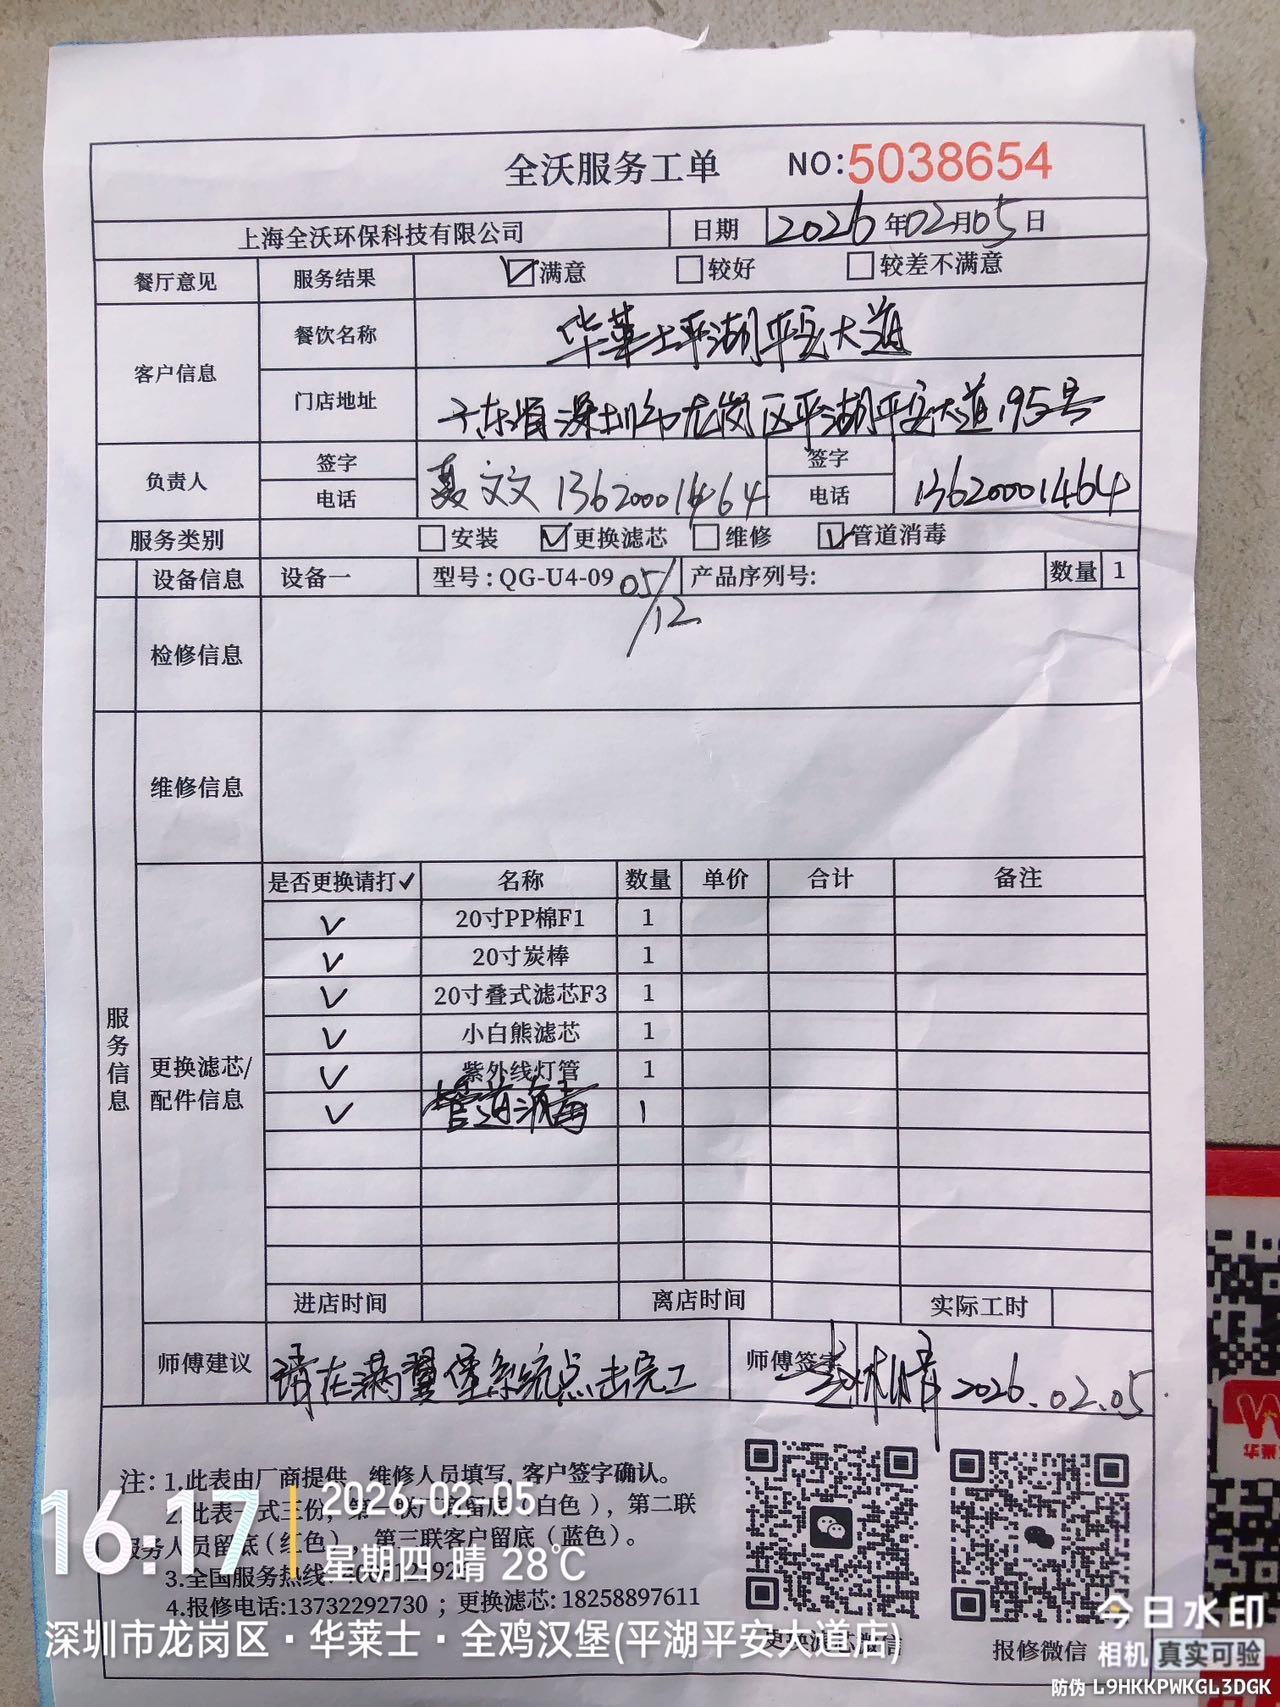 全沃服务工单 NO:5038654
上海全沃环保科技有限公司 日期 2026年02月05日
餐厅意见 服务结果 ☑满意 □较好 □较差不满意
客户信息 餐饮名称 华莱士平湖平安大道
门店地址 广东省深圳市龙岗区平湖平安大道195号
负责人 签字 电话 聂文文 13620001464 签字 电话 13620001464
服务类别 □安装 ☑更换滤芯 □维修 ☑管道消毒
设备信息 设备一 型号:QG-U4-09 05/12 产品序列号: 数量 1
检修信息
维修信息
服务信息
更换滤芯/配件信息
是否更换请打✓ 名称 数量 单价 合计 备注
✓ 20寸PP棉F1 1
✓ 20寸炭棒 1
✓ 20寸叠式滤芯F3 1
✓ 小白熊滤芯 1
✓ 紫外线灯管 1
✓ 管道消毒 1
进店时间 离店时间 实际工时
师傅建议 请在满翼堡系统点击完工 师傅签字 2026.02.05
注: 1.此表由厂商提供,维修人员填写,客户签字确认。
2.此表一式三份,第一联厂商留底(白色),第二联
服务人员留底(红色),第三联客户留底(蓝色)。
3.全国服务热线
4.报修电话:13732292730 ; 更换滤芯:18258897611
更换滤芯微信 报修微信
16:17 2026-02-05
星期四 晴 28℃
深圳市龙岗区·华莱士·全鸡汉堡(平湖平安大道店)
今日水印
相机 真实可验
防伪 L9HKKPWKGL3DGK
华莱